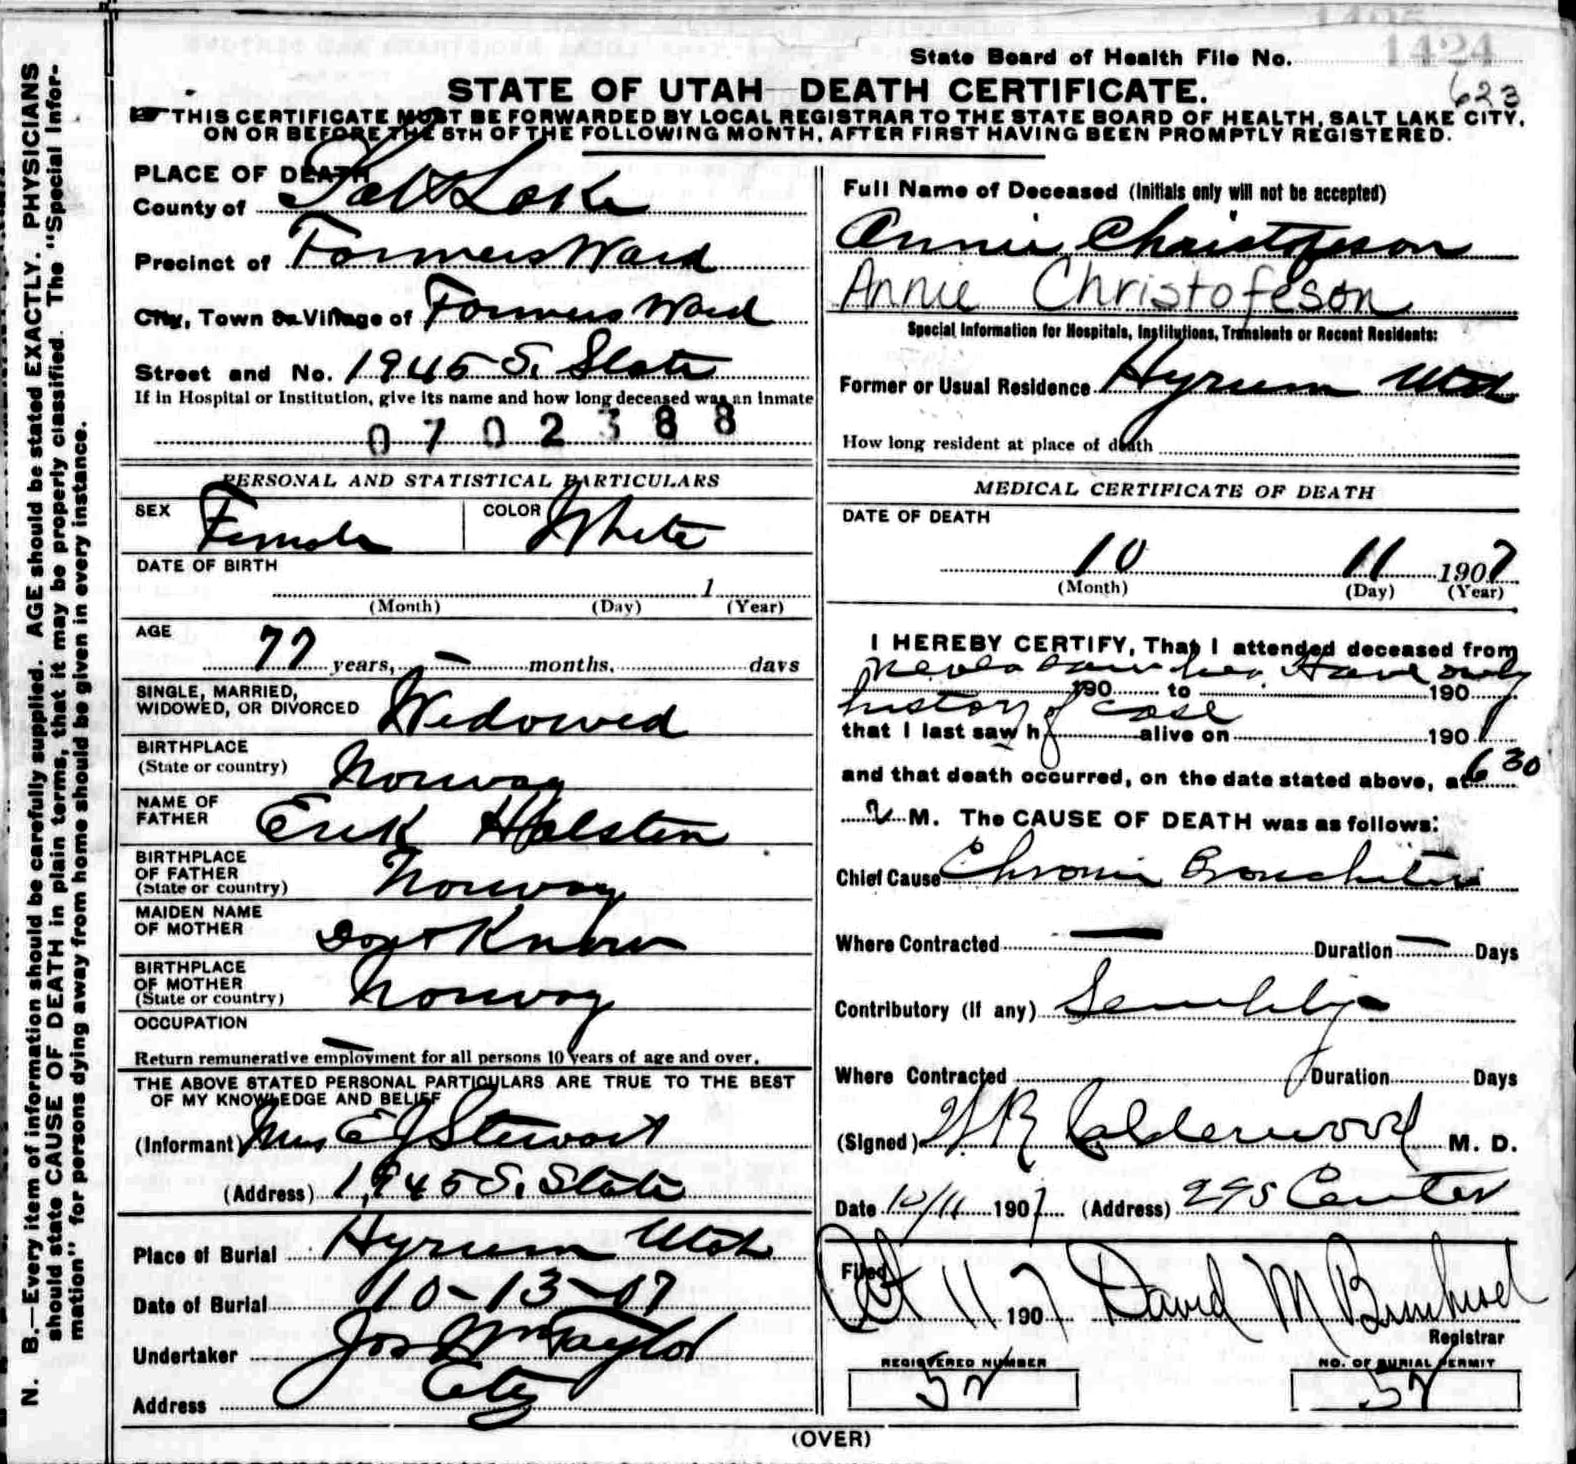 1424
State Board of Health File No.
STATE OF UTAH—DEATH CERTIFICATE.
623
THIS CERTIFICATE MUST BE FORWARDED BY LOCAL REGISTRAR TO THE STATE BOARD OF HEALTH, SALT LAKE CITY,
ON OR BEFORE THE 5TH OF THE FOLLOWING MONTH, AFTER FIRST HAVING BEEN PROMPTLY REGISTERED.
N. B.—Every item of information should be carefully supplied. AGE should be stated EXACTLY. PHYSICIANS
should state CAUSE OF DEATH in plain terms, that it may be properly classified. The "Special Infor-
mation" for persons dying away from home should be given in every instance.
PLACE OF DEATH
County of Salt Lake
Precinct of Farmers Ward
City, Town or Village of Farmers Ward
Street and No. 1945 S. State
If in Hospital or Institution, give its name and how long deceased was an inmate
0702388
PERSONAL AND STATISTICAL PARTICULARS
SEX Female COLOR White
DATE OF BIRTH
1
(Month) (Day) (Year)
AGE
77 years, — months, days
SINGLE, MARRIED,
WIDOWED, OR DIVORCED Widowed
BIRTHPLACE
(State or country) Norway
NAME OF
FATHER Erik Holsten
BIRTHPLACE
OF FATHER
(State or country) Norway
MAIDEN NAME
OF MOTHER Don't Know
BIRTHPLACE
OF MOTHER
(State or country) Norway
OCCUPATION
—
Return remunerative employment for all persons 10 years of age and over.
THE ABOVE STATED PERSONAL PARTICULARS ARE TRUE TO THE BEST
OF MY KNOWLEDGE AND BELIEF
(Informant) Mrs E J Stewart
(Address) 1945 S. State
Place of Burial Hyrum Utah
Date of Burial 10-13-07
Undertaker Jos Wm Taylor
Address City
Full Name of Deceased (Initials only will not be accepted)
Annie Christofeson
Annie Christofeson
Special Information for Hospitals, Institutions, Transients or Recent Residents:
Former or Usual Residence Hyrum Utah
How long resident at place of death
MEDICAL CERTIFICATE OF DEATH
DATE OF DEATH
10 11 1907
(Month) (Day) (Year)
I HEREBY CERTIFY, That I attended deceased from
never saw her. Have only
190 to 190
history of case
that I last saw h alive on 190
and that death occurred, on the date stated above, at 6 30
M. The CAUSE OF DEATH was as follows:
Chief Cause Chronic Bronchitis
Where Contracted — Duration — Days
Contributory (If any) Senility
Where Contracted Duration Days
(Signed) Calderwood M. D.
Date 10/11 1907 (Address) Center
Filed Oct 11 1907 David M
Registrar
REGISTERED NUMBER
52
NO. OF BURIAL PERMIT
52
(OVER)